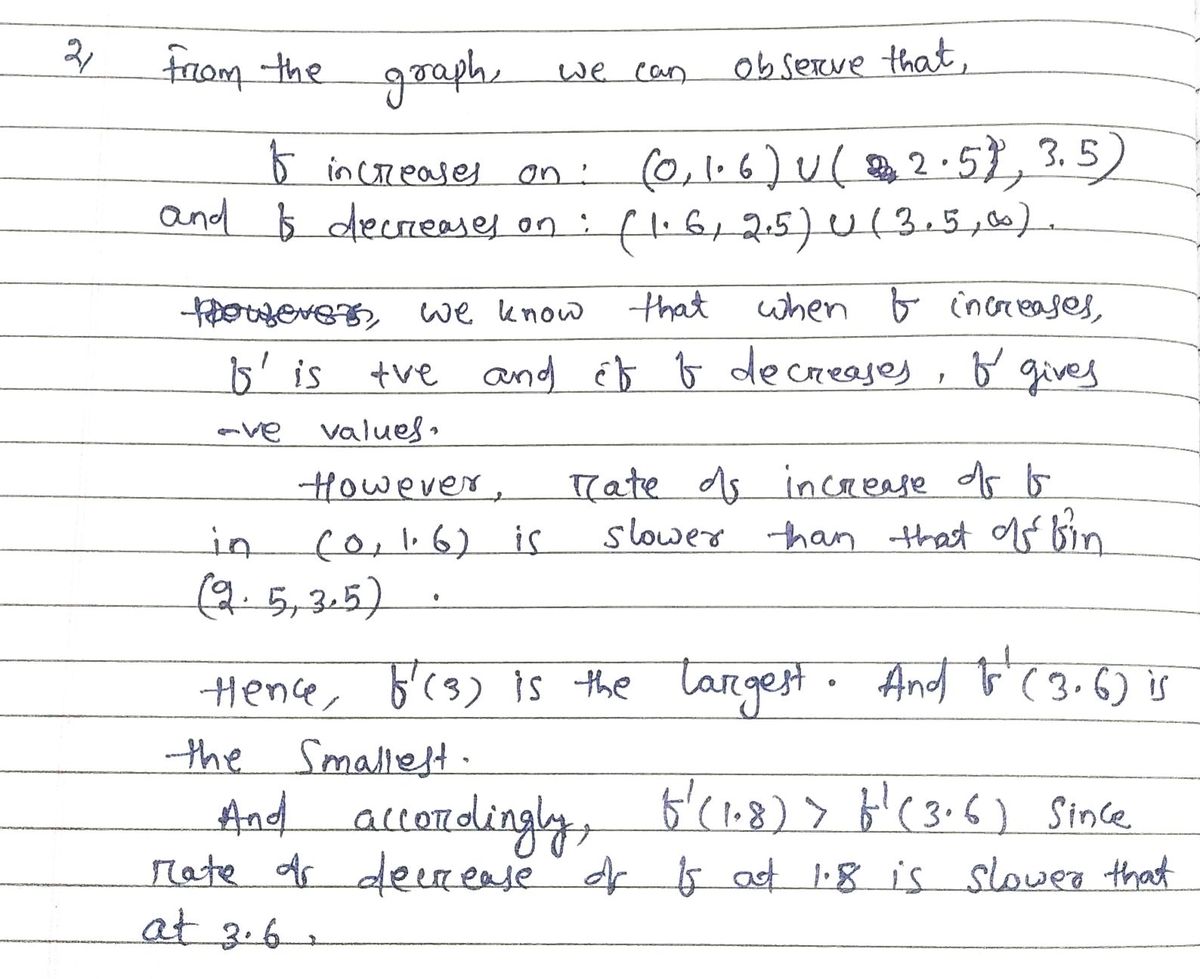 2, From the graph, we can observe that,
f increases on : (0, 1.6) ∪ ( 2.5, 3.5)
and f decreases on : (1.6, 2.5) ∪ (3.5, ∞).
However, we know that when f increases,
f' is +ve and if f decreases, f' gives
-ve values.
However, rate of increase of f
in (0, 1.6) is slower than that of f in
(2.5, 3.5) .
Hence, f'(3) is the largest. And f'(3.6) is
the smallest.
And accordingly, f'(1.8) > f'(3.6) since
rate of decrease of f at 1.8 is slower that
at 3.6,